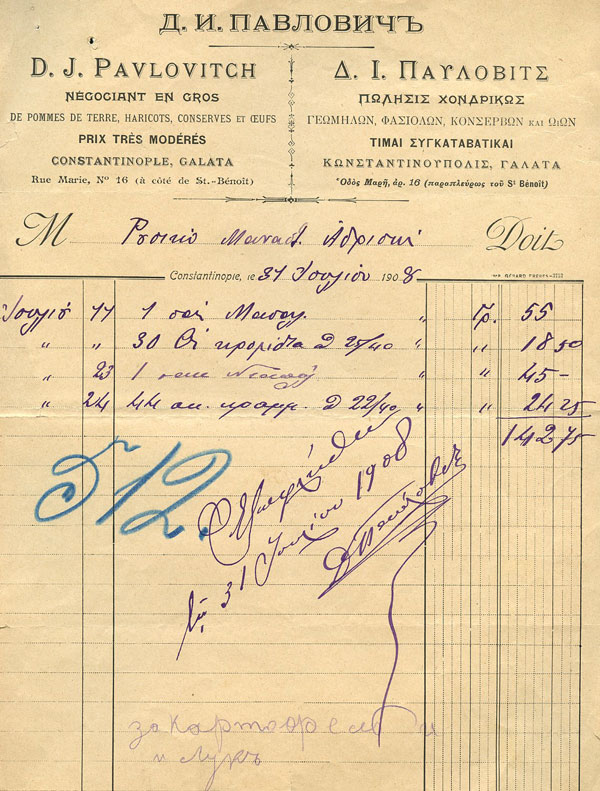 Д. И. ПАВЛОВИЧЪ
D. J. PAVLOVITCH
NÉGOCIANT EN GROS
DE POMMES DE TERRE, HARICOTS, CONSERVES ET ŒUFS
PRIX TRÈS MODÉRÉS
CONSTANTINOPLE, GALATA
Rue Marie, Nº 16 (à côté de St.-Bénoît)
Δ. Ι. ΠΑΥΛΟΒΙΤΣ
ΠΩΛΗΣΙΣ ΧΟΝΔΡΙΚΩΣ
ΓΕΩΜΗΛΩΝ, ΦΑΣΙΟΛΩΝ, ΚΟΝΣΕΡΒΩΝ ΚΑΙ ΩΩΝ
ΤΙΜΑΙ ΣΥΓΚΑΤΑΒΑΤΙΚΑΙ
ΚΩΝΣΤΑΝΤΙΝΟΥΠΟΛΙΣ, ΓΑΛΑΤΑ
Ὁδὸς Μαρῆ, ἀρ. 16 (παραπλεύρως τοῦ St Bénoît)
M Doit
Constantinople, le 31 Ἰουλίου 1908
Ἰουλίου 11 1 " Γρ. 55
" " 30 κρομίδια 25/40 " " 18 50
" 23 1 " " 45 –
" 24 44 οκ. κρομμ. 22/40 " " 24 25
142 75
12.
Ἐξωφλήθη
31 Ἰουλίου 1908
за картофель и
и лукъ